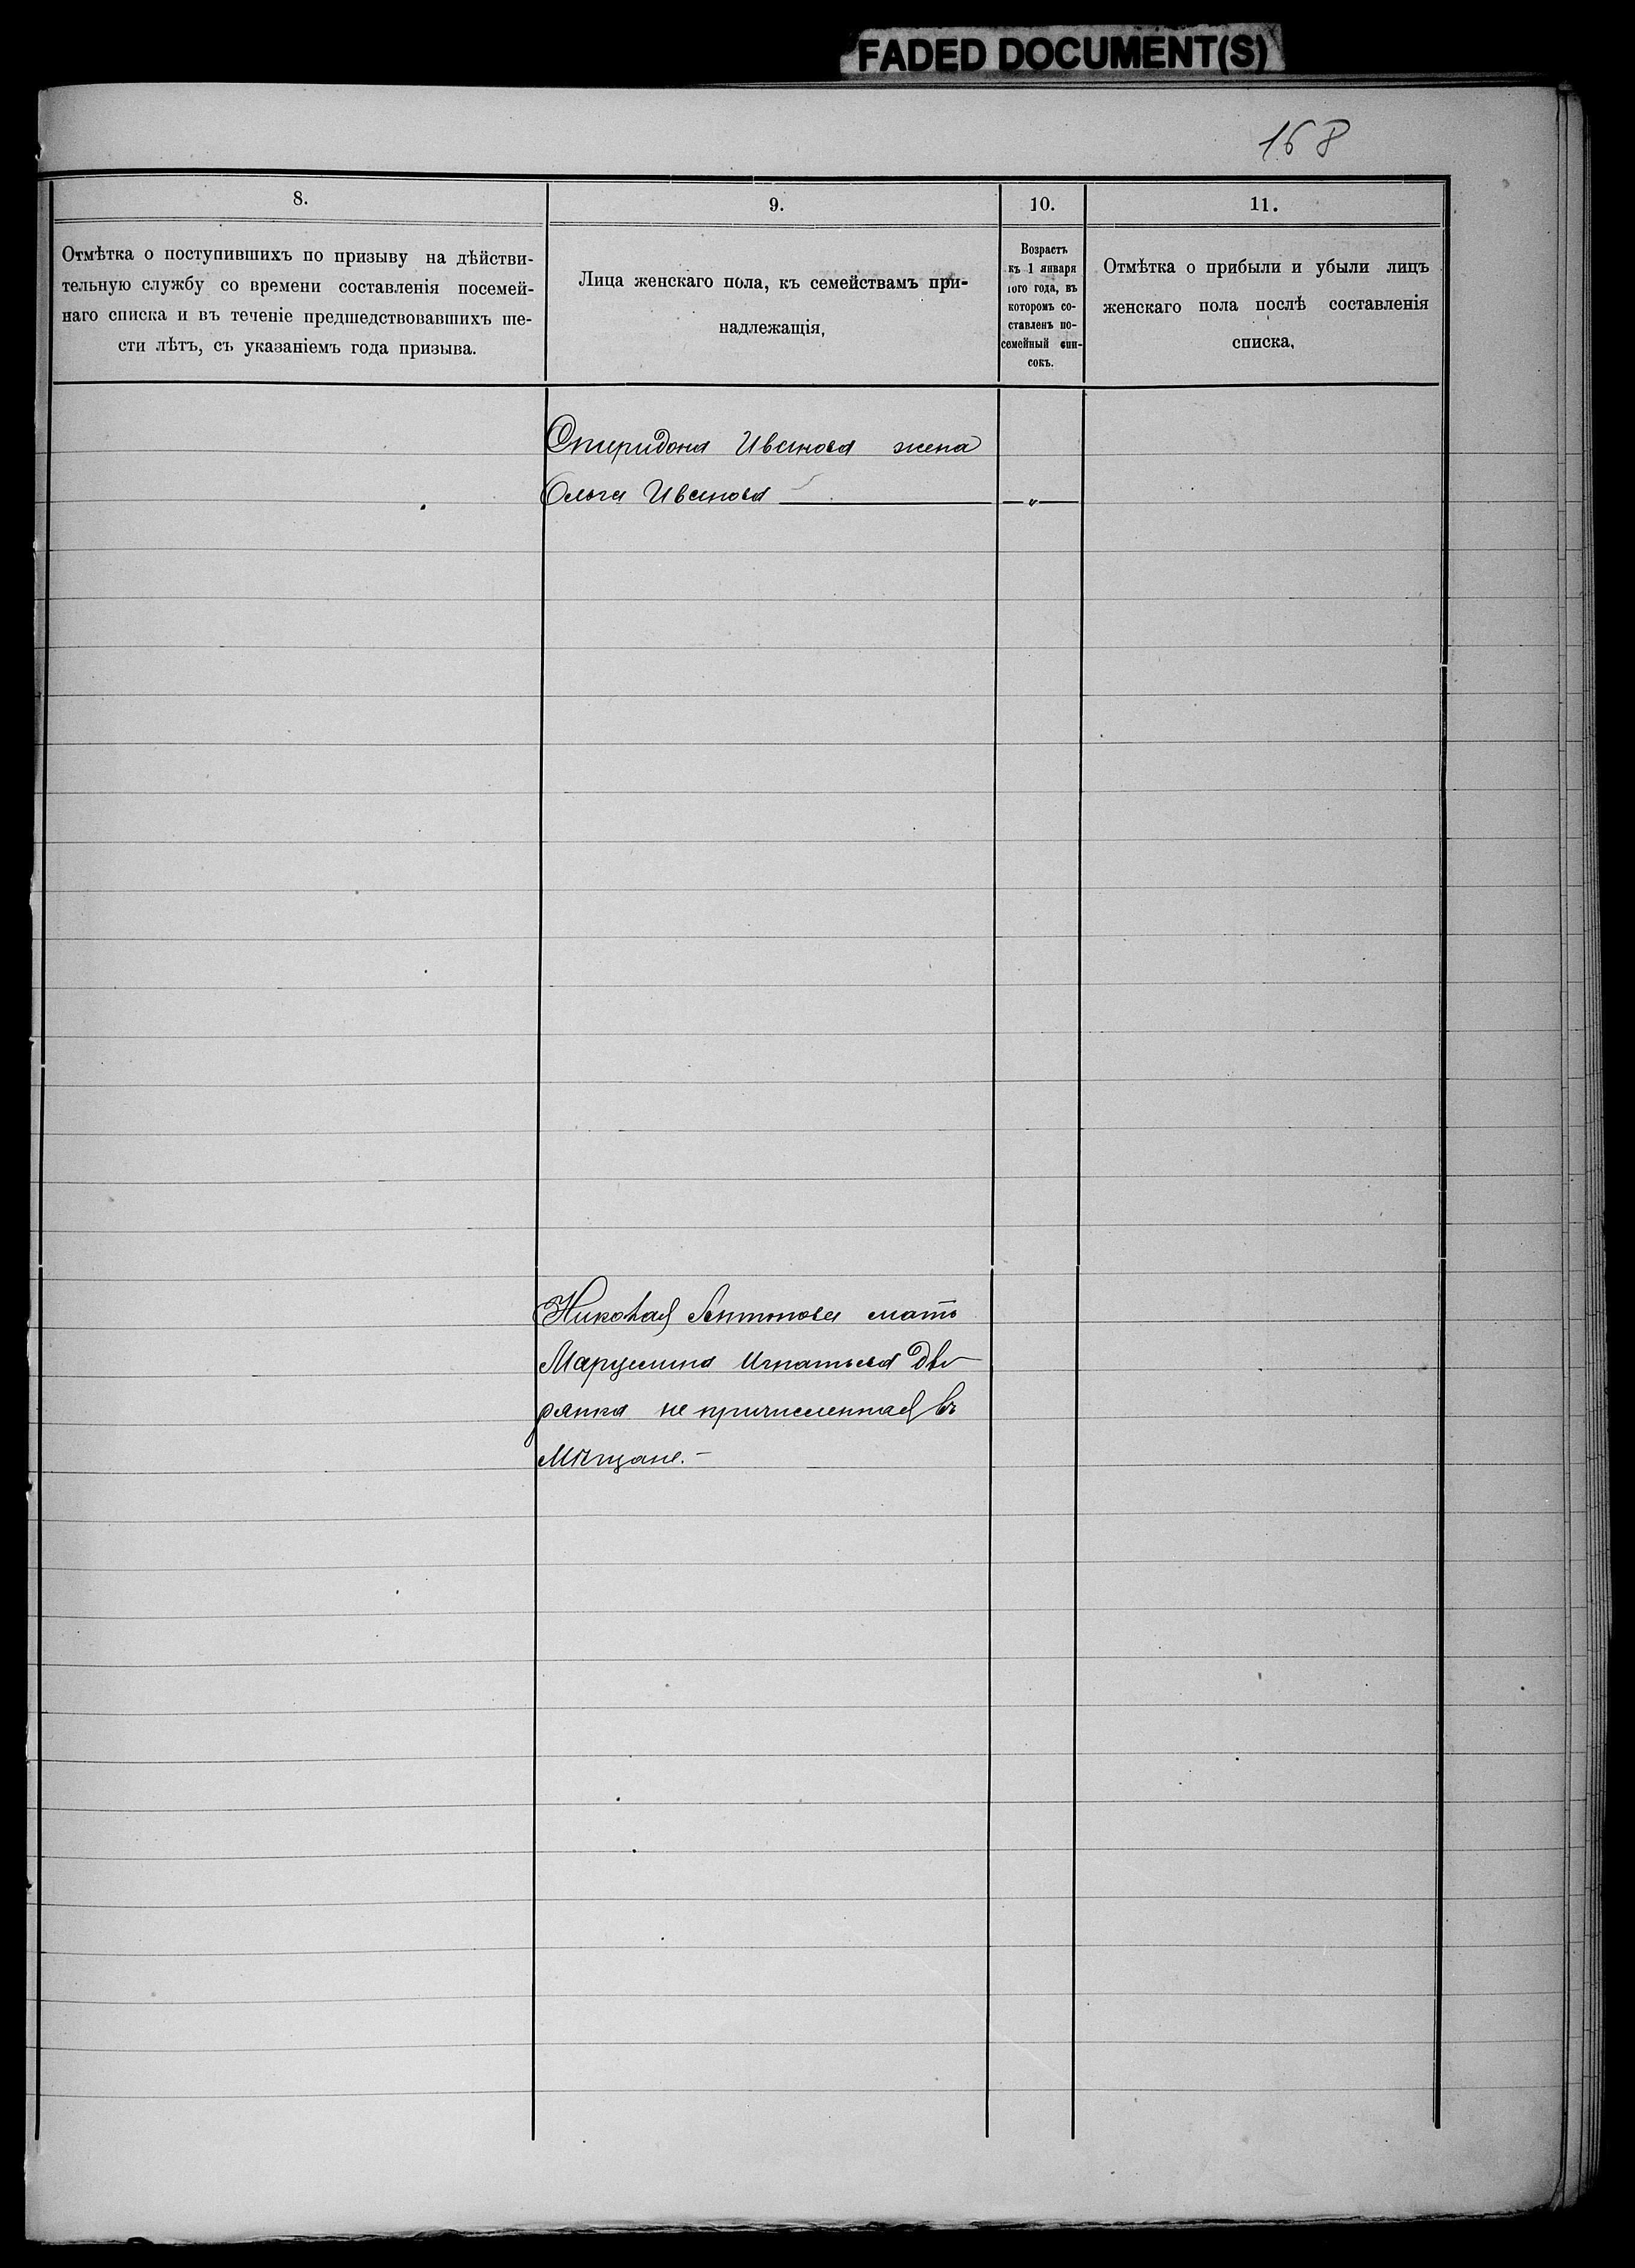 FADED DOCUMENT(S)
168
8.
9.
10.
11.
Отмѣтка о поступившихъ по призыву на дѣйстви-
тельную службу со времени составленія посемей-
наго списка и въ теченіе предшедствовавшихъ ше-
сти лѣтъ, съ указаніемъ года призыва.
Лица женскаго пола, къ семействамъ при-
надлежащія,
Возрастъ
къ 1 января
того года, въ
которомъ со-
ставленъ по-
семейный спи-
сокъ.
Отмѣтка о прибыли и убыли лицъ
женскаго пола послѣ составленія
списка.
Спиридона Иванова жена
Ольга Иванова — „ —
Николая Антонова мать
Игнатьева Дво
рянка не причисленная въ
Мѣщане. –